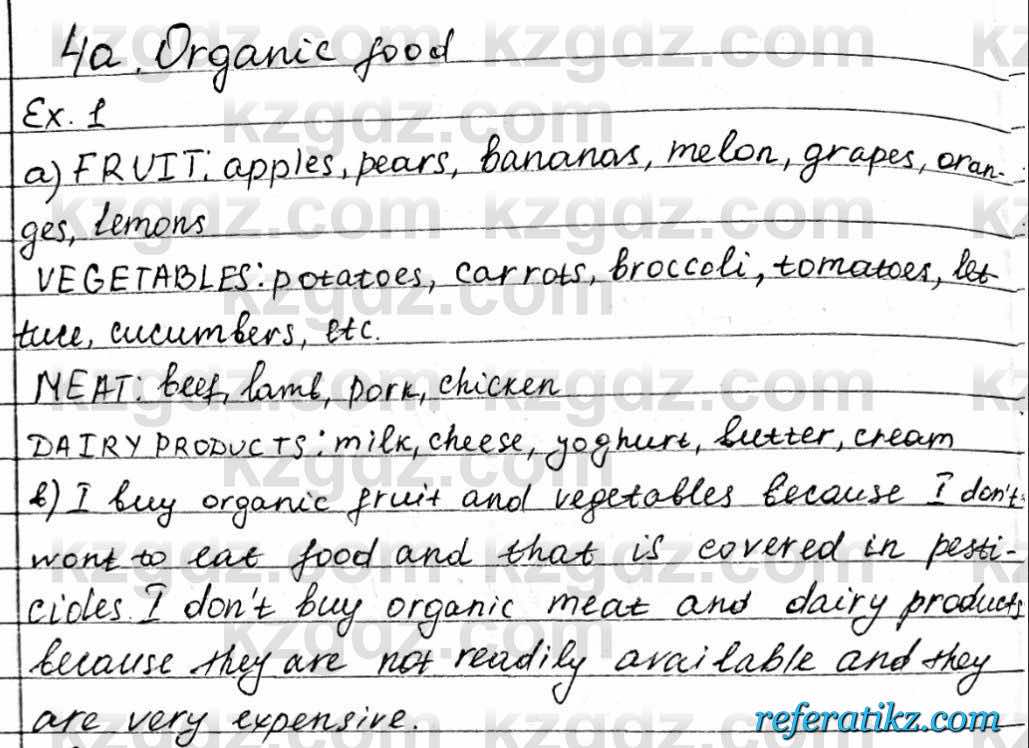 4a. Organic food
Ex. 1
a) FRUIT: apples, pears, bananas, melon, grapes, oran-
ges, lemons
VEGETABLES: potatoes, carrots, broccoli, tomatoes, let
tuce, cucumbers, etc.
MEAT: beef, lamb, pork, chicken
DAIRY PRODUCTS: milk, cheese, yoghurt, butter, cream
b) I buy organic fruit and vegetables because I don't
wont to eat food and that is covered in pesti-
cides. I don't buy organic meat and dairy products
because they are not readily available and they
are very expensive.
referatikz.com